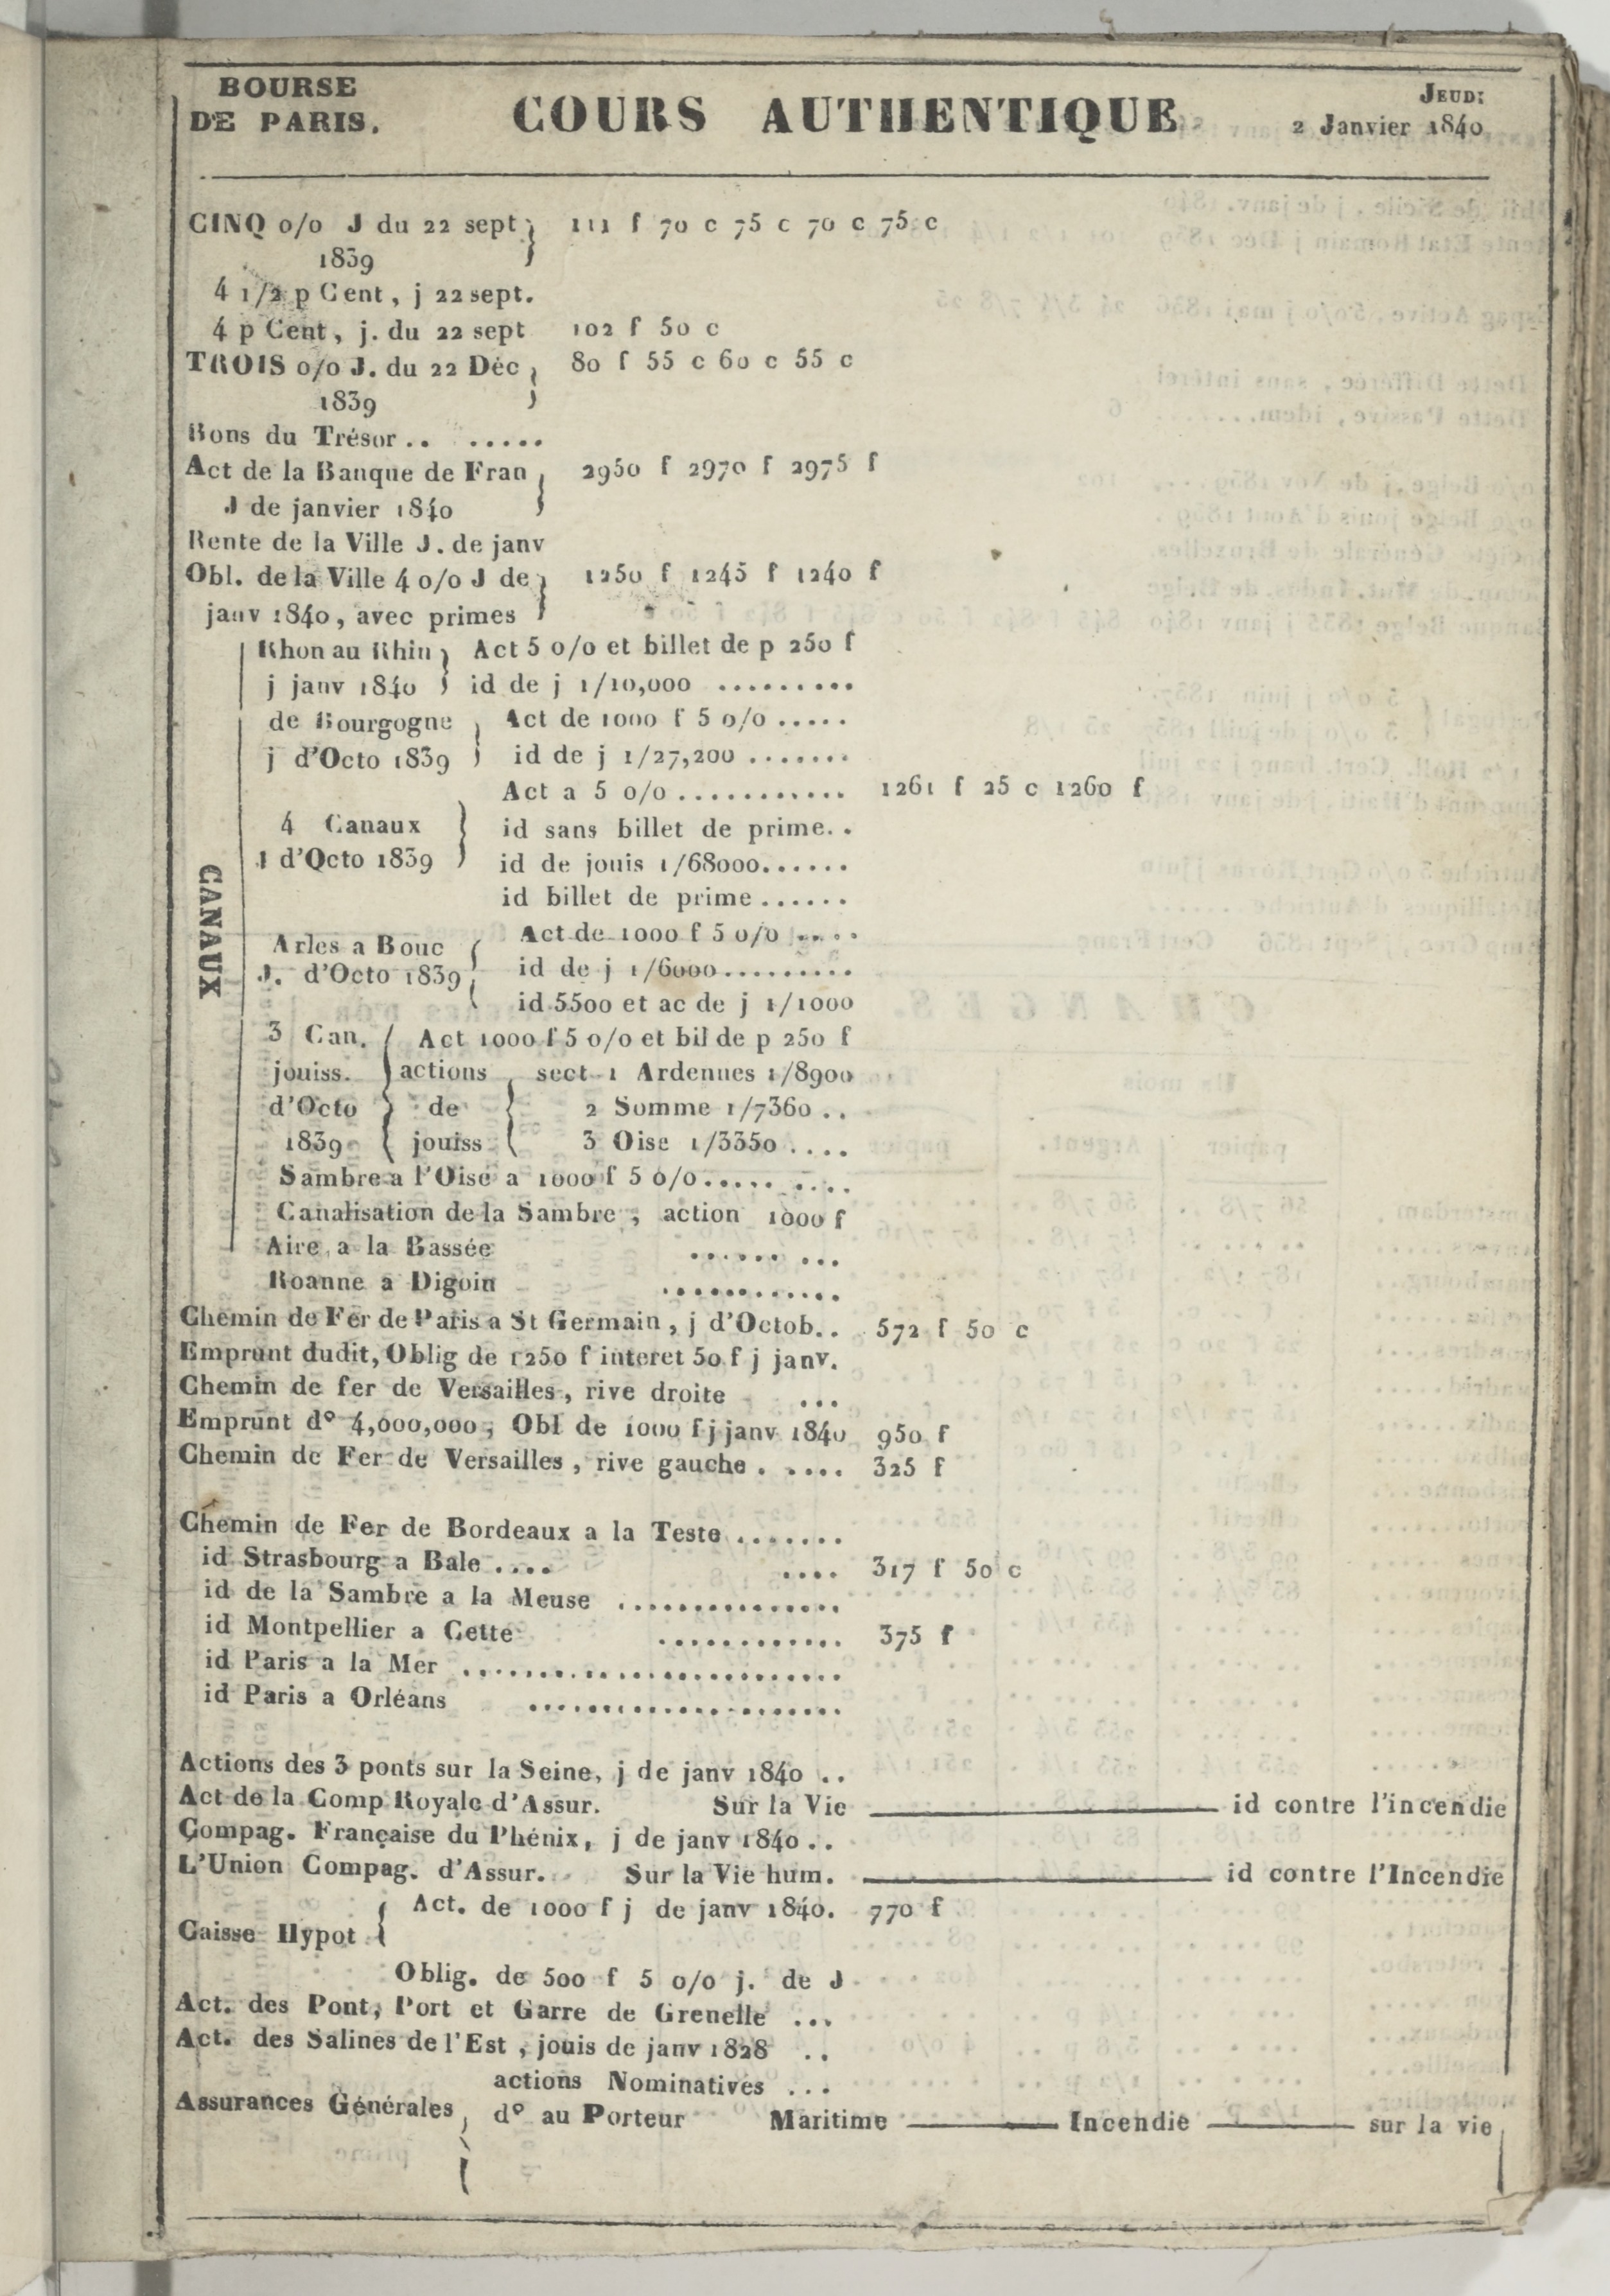 BOURSE
DE PARIS.
COURS AUTHENTIQUE
JEUDI
2 Janvier 1840
CINQ o/o J du 22 sept 111 f 70 c 75 c 70 c 75 c
1839
4 1/2 p Cent, j 22 sept.
4 p Cent, j. du 22 sept 102 f 50 c
TROIS o/o J. du 22 Déc 80 f 55 c 60 c 55 c
1839
Bons du Trésor.. .....
Act de la Banque de Fran 2950 f 2970 f 2975 f
J de janvier 1840
Rente de la Ville J. de janv
Obl. de la Ville 4 o/o J de 1250 f 1245 f 1240 f
janv 1840, avec primes
CANAUX
Rhon au Rhin Act 5 o/o et billet de p 250 f
j janv 1840 id de j 1/10,000 .........
de Bourgogne Act de 1000 f 5 o/o .....
j d'Octo 1839 id de j 1/27,200 .......
Act a 5 o/o ........... 1261 f 25 c 1260 f
4 Canaux id sans billet de prime..
J d'Octo 1839 id de jouis 1/68000......
id billet de prime ......
Arles a Bouc Act de 1000 f 5 o/o ....
J. d'Octo 1839 id de j 1/6000.........
id 5500 et ac de j 1/1000
3 Can. Act 1000 f 5 o/o et bil de p 250 f
jouiss. actions sect 1 Ardennes 1/8900
d'Octo de 2 Somme 1/7360 ..
1839 jouiss 3 Oise 1/3350 ....
Sambre a l'Oise a 1000 f 5 o/o..... ....
Canalisation de la Sambre, action 1000 f
Aire a la Bassée ...... ...
Roanne a Digoin ............
Chemin de Fer de Paris a St Germain, j d'Octob.. 572 f 50 c
Emprunt dudit, Oblig de 1250 f interet 50 f j janv.
Chemin de fer de Versailles, rive droite ...
Emprunt d° 4,000,000, Obl de 1000 f j janv 1840 950 f
Chemin de Fer de Versailles, rive gauche . .... 325 f
Chemin de Fer de Bordeaux a la Teste .......
id Strasbourg a Bale .... .... 317 f 50 c
id de la Sambre a la Meuse ...............
id Montpellier a Cette ............ 375 f
id Paris a la Mer .........................
id Paris a Orléans .....................
Actions des 3 ponts sur la Seine, j de janv 1840 ..
Act de la Comp Royale d'Assur. Sur la Vie id contre l'incendie
Compag. Française du Phénix, j de janv 1840 ..
L'Union Compag. d'Assur. Sur la Vie hum. id contre l'Incendie
Act. de 1000 f j de janv 1840. 770 f
Caisse Hypot
Oblig. de 500 f 5 o/o j. de J
Act. des Pont, Port et Garre de Grenelle ...
Act. des Salines de l'Est, jouis de janv 1828 ..
actions Nominatives ...
Assurances Générales d° au Porteur Maritime Incendie sur la vie